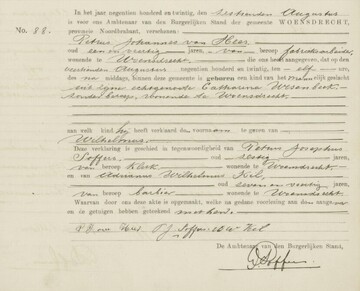 In het jaar negentien honderd zes en twintig, den zestienden Augustus
is voor ons Ambtenaar van den Burgerlijken Stand der gemeente WOENSDRECHT,
No. 88. provincie Noordbrabant, verschenen:
Petrus Johannes van Heer,
oud een en veertig jaren, van beroep fabrieksarbeider,
wonende te Woensdrecht, die ons heeft aangegeven, dat op den
Augustus negentien honderd zes en twintig, te elf ure
des middags, binnen deze gemeente is geboren een kind van het mannelijk geslacht
uit zijne echtgenoote Catharina
zonder beroep, wonende te Woensdrecht.
aan welk kind hij heeft verklaard den voornaam te geven van
Wilhelmus
Deze verklaring is geschied in tegenwoordigheid van Petrus Josephus
Soffers oud zestig jaren,
van beroep klerk wonende te Woensdrecht
en van Adrianus Wilhelmus
oud zeven en veertig jaren,
van beroep wonende te Woensdrecht
Waarvan door ons deze akte is opgemaakt, welke na gedane voorlezing aan den aangever
en de getuigen hebben geteekend met ons.
P J Soffers
De Ambtenaar van den Burgerlijken Stand,